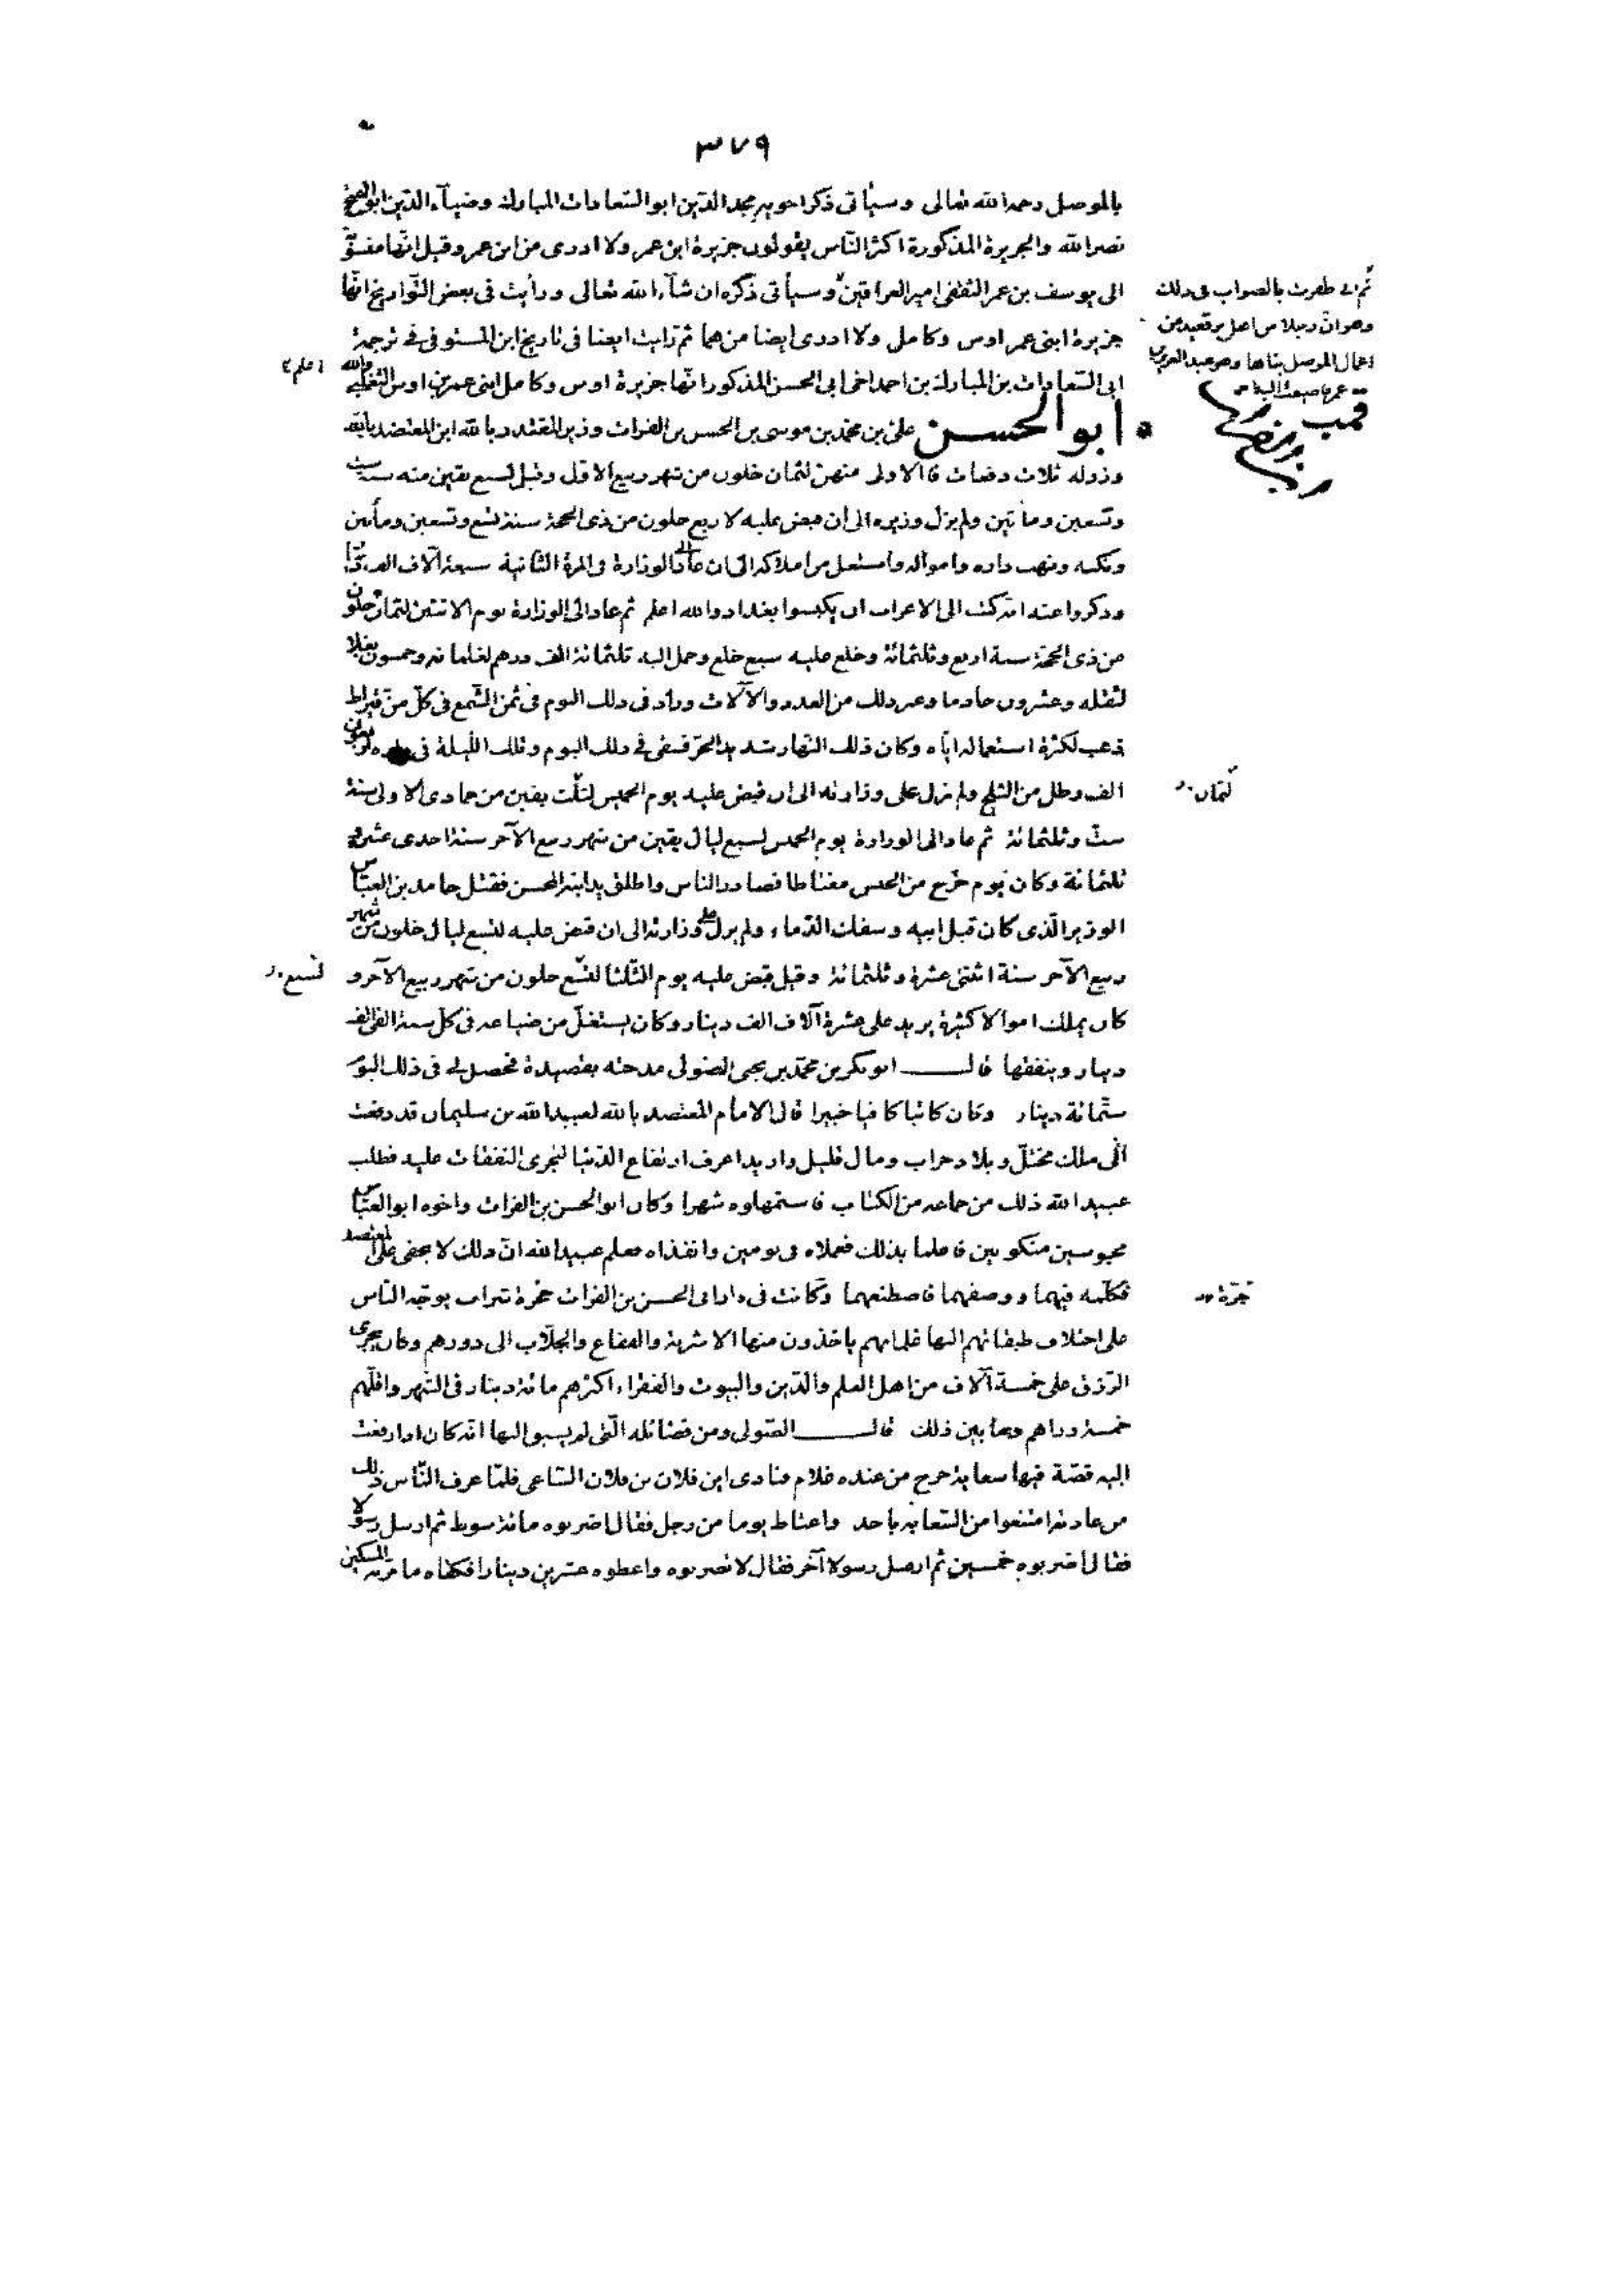 ٣٧٩
بالموصل رحمه الله تعالى وسيأتى ذكر اخويه مجد الدين ابو السعادات المبارك وضياء الدين ابو الفتح
نصر الله والجزيرة المذكورة اكثر الناس يقولون جزيرة ابن عمر ولا ادرى من ابن عمر وقيل انها منسوبة
الى يوسف بن عمر الثقفى امير العراقين وسيأتى ذكره ان شاء الله تعالى ورأيت فى بعض التواريخ انها
جزيرة ابنى عمر اوس وكامل ولا ادرى ايضا من هما ثم رايت ايضا فى تاريخ ابن المستوفى فى ترجمة
ابى السعادات بن المبارك بن احمد اخى ابى الحسن المذكور انها جزيرة اوس وكامل ابنى عمر بن اوس التغلبى والله
اعلم
ثم انى ظفرت بالصواب فى ذلك
وهو ان رجلا من اهل برقعيد من
اعمال الموصل بناها وهو عبد العزيز بن
عمر فاضيفت اليه
ابو الحسن على بن محمد بن موسى بن الحسن بن الفرات وزير المقتدر بالله ابن المعتضد بالله
وزر له ثلاث دفعات فالاولى منهن لثمان خلون من شهر ربيع الاول وقيل لسبع بقين منه سنة ست
وتسعين ومأتين ولم يزل وزيره الى ان قبض عليه لاربع خلون من ذى الحجة سنة تسع وتسعين ومأتين
ونكبه ونهب داره وامواله واستغل من املاكه الى ان عاد الى الوزارة فى المرة الثانية سبعة آلاف الف دينار
وذكروا عنه انه كتب الى الاعراب ان يكبسوا بغداد والله اعلم ثم عاد الى الوزارة يوم الاثنين لثمان خلون
من ذى الحجة سنة اربع وثلثمائة وخلع عليه سبع خلع وحمل اليه ثلثمائة الف درهم لغلمانه وخمسون بغلا
لثقله وعشرون خادما وغير ذلك من العدد والآلات وزاد فى ذلك اليوم فى ثمن الشمع فى كل من قيراط
ذهب لكثرة استعماله اياه وكان ذلك النهار شديد الحر فسقى فى ذلك اليوم وتلك الليلة فى داره اربعون
الف رطل من الثلج ولم يزل على وزارته الى ان قبض عليه يوم الخميس لثلث بقين من جمادى الاولى سنة
لثمان
ست وثلثمائة ثم عاد الى الوزارة يوم الخميس لسبع ليال بقين من شهر ربيع الآخر سنة احدى عشرة و
ثلثمائة وكان يوم خرج من الحبس مغتاظا فصادر الناس واطلق يد ابنه المحسن فقتل حامد بن العباس
الوزير الذى كان قبل ابيه وسفك الدماء ولم يزل على وزارته الى ان قبض عليه لتسع ليال خلون من شهر
ربيع الآخر سنة اثنتى عشرة وثلثمائة وقيل قبض عليه يوم الثلثا لتسع خلون من شهر ربيع الآخر و
لسبع
كان يملك اموالا كثيرة يزيد على عشرة آلاف الف دينار وكان يستغل من ضياعه فى كل سنة الفى الف
دينار وينفقها قال ابو بكر بن محمد بن يحيى الصولى مدحته بقصيدة فحصل لى فى ذلك اليوم
ستمائة دينار وكان كاتبا كافيا خبيرا قال الامام المعتضد بالله لعبيد الله بن سليمان قد دفعت
الى ملك مختل وبلاد خراب ومال قليل واريد اعرف ارتفاع الدنيا لتجرى النفقات عليه فطلب
عبيد الله ذلك من جماعة من الكتاب فاستمهلوه شهرا وكان ابو الحسن بن الفرات واخوه ابو العباس
محبوسين منكوبين فاعلما بذلك فعملاه فى يومين وانفذاه فعلم عبيد الله ان ذلك لا يخفى على المعتضد
فكلمه فيهما ووصفهما فاصطنعهما وكانت فى دار ابى الحسن بن الفرات حجرة شراب يوجه الناس
على اختلاف طبقاتهم اليها غلمانهم ياخذون منها الاشربة والفقاع والجلاب الى دورهم وكان يجرى
الرزق على خمسة آلاف من اهل العلم والدين والبيوت والفقراء اكثرهم مائة دينار فى الشهر واقلهم
خمسة دراهم وما بين ذلك قال الصولى ومن فضائله التى لم يسبق اليها انه كان اذا رفعت
اليه قصة فيها سعاية خرج من عنده غلام فنادى اين فلان بن فلان الساعى فلما عرف الناس ذلك
من عادته امتنعوا من السعاية باحد واغتاظ يوما من رجل فقال اضربوه مائة سوط ثم ارسل رسولا
فقال اضربوه خمسين ثم ارسل رسولا آخر فقال لا تضربوه واعطوه عشرين دينارا فكفاه ما مر به المسكين